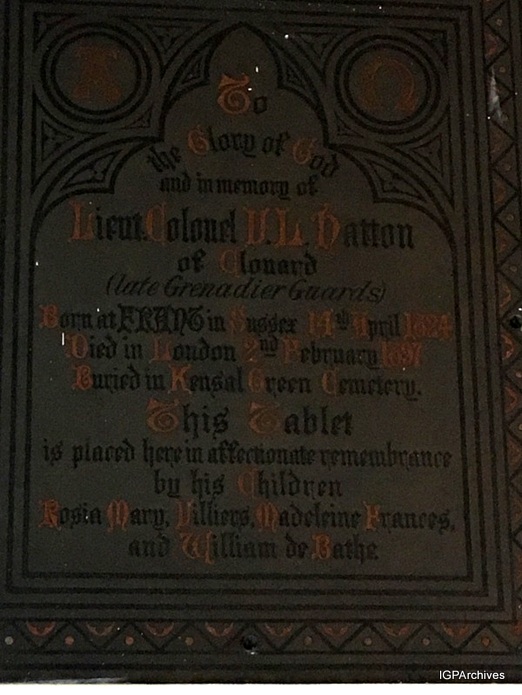 A Ω
To
the Glory of God
and in memory of
Lieut. Colonel V. L. Hatton
of Clonard
(late Grenadier Guards)
Born at FRANT in Sussex 14th April 1824
Died in London 2nd February 1897
Buried in Kensal Green Cemetery.
This Tablet
is placed here in affectionate remembrance
by his Children
Rosia Mary, Villiers, Madeleine Frances,
and William de Bathe
IGPArchives